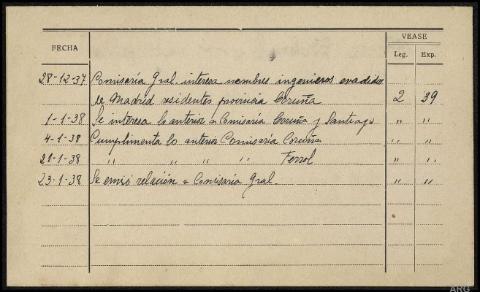 FECHA VEASE
Leg. Exp.
28-12-37 Comisaría Gral. interesa nombres ingenieros evadidos
de Madrid residentes provincia Coruña 2 39
1-1-38 Se interesa lo anterior a Comisaría Coruña y Santiago " "
4-1-38 Cumplimenta lo anterior Comisaría Coruña " "
21-1-38 " " " " Ferrol " "
23-1-38 Se envió relación a Comisaría Gral. " "
ARG